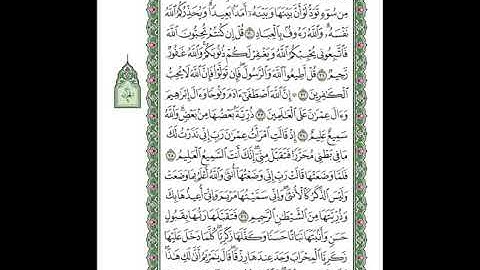 مِن سُوٓءٍ تَوَدُّ لَوْ أَنَّ بَيْنَهَا وَبَيْنَهُۥٓ أَمَدًۢا بَعِيدًۭا ۗ وَيُحَذِّرُكُمُ ٱللَّهُ
نَفْسَهُۥ ۗ وَٱللَّهُ رَءُوفٌۢ بِٱلْعِبَادِ ٣٠ قُلْ إِن كُنتُمْ تُحِبُّونَ ٱللَّهَ
فَٱتَّبِعُونِى يُحْبِبْكُمُ ٱللَّهُ وَيَغْفِرْ لَكُمْ ذُنُوبَكُمْ ۗ وَٱللَّهُ غَفُورٌۭ
رَّحِيمٌۭ ٣١ قُلْ أَطِيعُوا۟ ٱللَّهَ وَٱلرَّسُولَ ۖ فَإِن تَوَلَّوْا۟ فَإِنَّ ٱللَّهَ لَا يُحِبُّ
ٱلْكَٰفِرِينَ ٣٢ ۞ إِنَّ ٱللَّهَ ٱصْطَفَىٰٓ ءَادَمَ وَنُوحًۭا وَءَالَ إِبْرَٰهِيمَ
وَءَالَ عِمْرَٰنَ عَلَى ٱلْعَٰلَمِينَ ٣٣ ذُرِّيَّةًۢ بَعْضُهَا مِنۢ بَعْضٍۢ ۗ وَٱللَّهُ
سَمِيعٌ عَلِيمٌ ٣٤ إِذْ قَالَتِ ٱمْرَأَتُ عِمْرَٰنَ رَبِّ إِنِّى نَذَرْتُ لَكَ
مَا فِى بَطْنِى مُحَرَّرًۭا فَتَقَبَّلْ مِنِّىٓ ۖ إِنَّكَ أَنتَ ٱلسَّمِيعُ ٱلْعَلِيمُ ٣٥
فَلَمَّا وَضَعَتْهَا قَالَتْ رَبِّ إِنِّى وَضَعْتُهَآ أُنثَىٰ وَٱللَّهُ أَعْلَمُ بِمَا وَضَعَتْ
وَلَيْسَ ٱلذَّكَرُ كَٱلْأُنثَىٰ ۖ وَإِنِّى سَمَّيْتُهَا مَرْيَمَ وَإِنِّىٓ أُعِيذُهَا بِكَ
وَذُرِّيَّتَهَا مِنَ ٱلشَّيْطَٰنِ ٱلرَّجِيمِ ٣٦ فَتَقَبَّلَهَا رَبُّهَا بِقَبُولٍ
حَسَنٍۢ وَأَنۢبَتَهَا نَبَاتًا حَسَنًۭا وَكَفَّلَهَا زَكَرِيَّا ۖ كُلَّمَا دَخَلَ عَلَيْهَا
زَكَرِيَّا ٱلْمِحْرَابَ وَجَدَ عِندَهَا رِزْقًۭا ۖ قَالَ يَٰمَرْيَمُ أَنَّىٰ لَكِ هَٰذَا ۖ